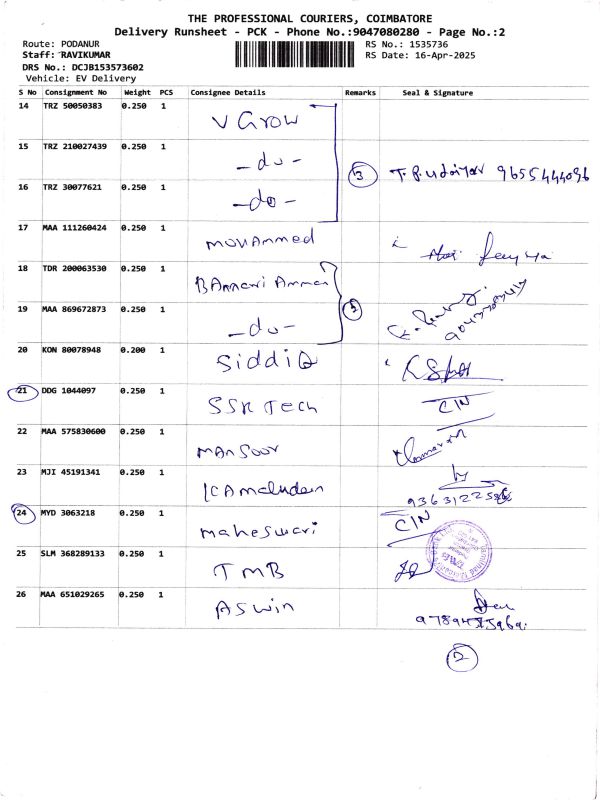 THE PROFESSIONAL COURIERS, COIMBATORE
Delivery Runsheet - PCK - Phone No.:9047080280 - Page No.:2
Route: PODANUR RS No.: 1535736
Staff: RAVIKUMAR RS Date: 16-Apr-2025
DRS No.: DCJB153573602
Vehicle: EV Delivery
S No Consignment No Weight PCS Consignee Details Remarks Seal & Signature
14 TRZ 50050383 0.250 1 V Grow
15 TRZ 210027439 0.250 1 -do-
16 TRZ 30077621 0.250 1 -do- 3 9655444096
17 MAA 111260424 0.250 1 Mohammed
18 TDR 200063530 0.250 1 BAnnari Amman
19 MAA 869672873 0.250 1 -do- 2
20 KON 80078948 0.200 1 SiddiQ
21 DDG 1044097 0.250 1 SSK Tech CIN
22 MAA 575830600 0.250 1 MAnSoor
23 MJI 45191341 0.250 1
24 MYD 3063218 0.250 1 maheswari CIN
25 SLM 368289133 0.250 1 TMB
26 MAA 651029265 0.250 1 ASwin
2